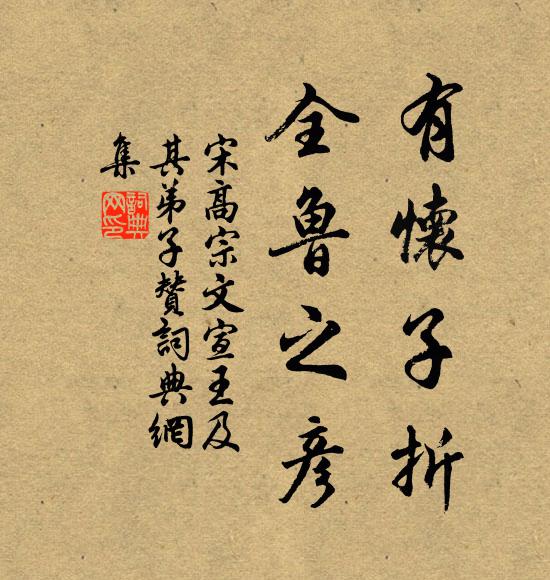 有懷子折
全魯之彥
宋高宗文宣王及
其弟子贊詞典網
集
詞典網印